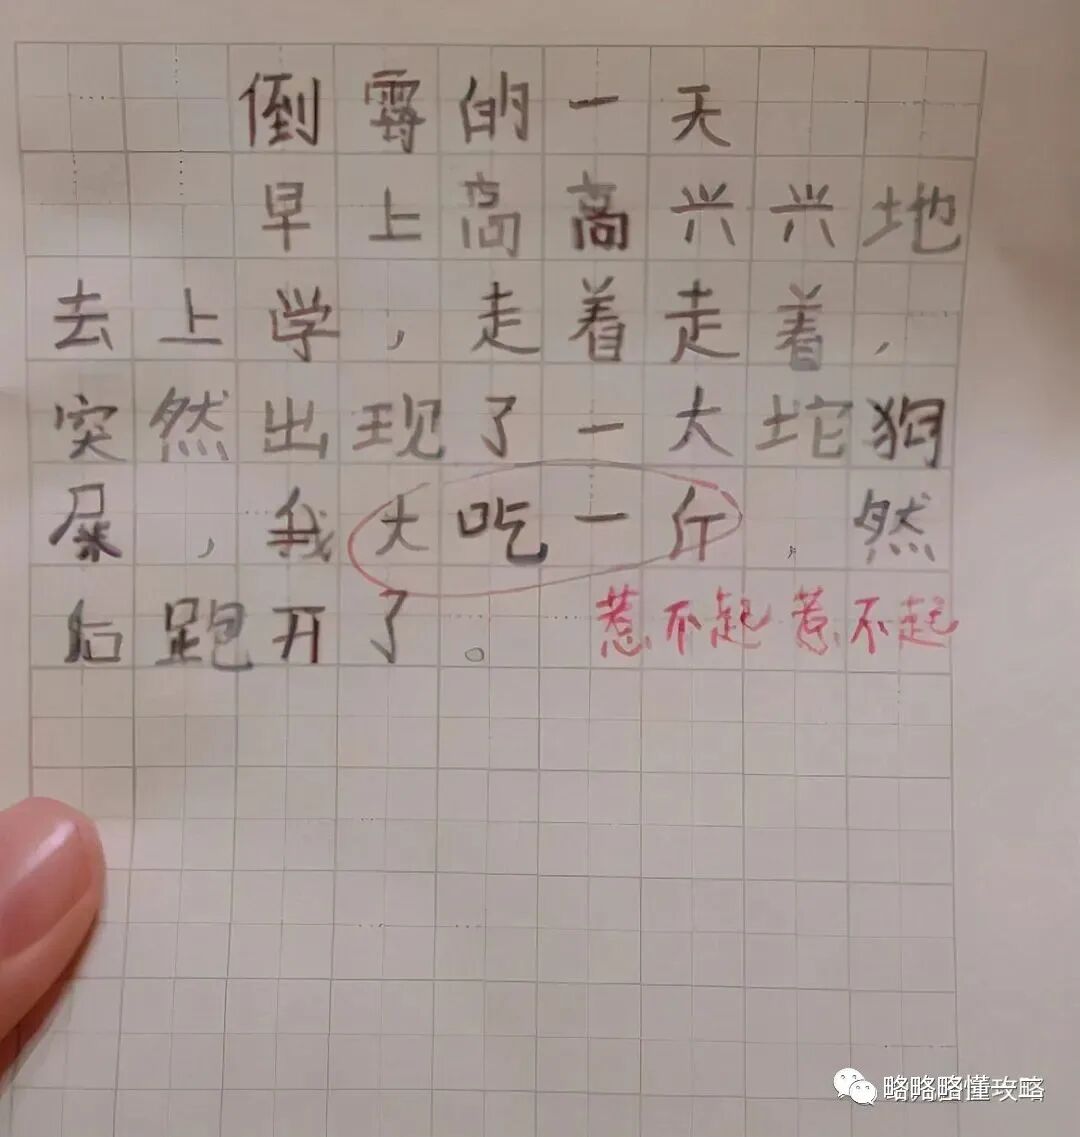 倒霉的一天
早上高高兴兴地
去上学，走着走着，
突然出现了一大坨狗
屎，我大吃一斤，然
后跑开了。
惹不起惹不起
略略略懂攻略